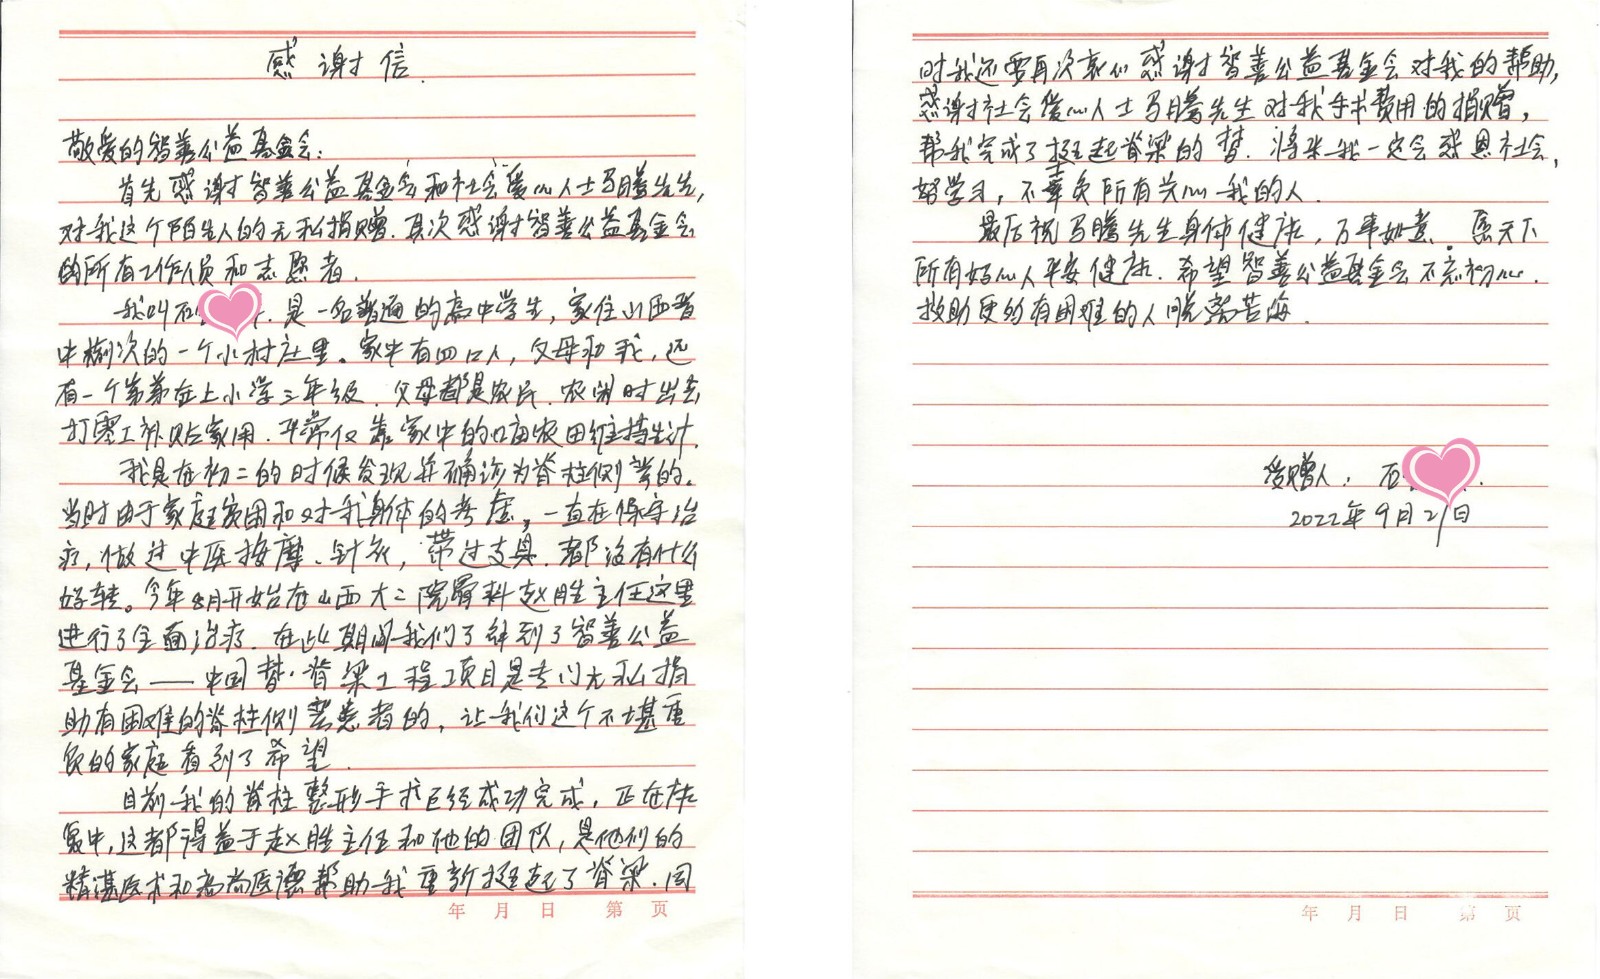 感谢信.
敬爱的智善公益基金会:
首先感谢智善公益基金会和社会爱心人士马腾先生,
对我这个陌生人的无私捐赠.其次感谢智善公益基金会
的所有工作人员和志愿者.
我叫石 是一名普通的高中学生,家住山西晋
中榆次的一个小村庄里。家中有四口人,父母和我,还
有一个弟弟在上小学三年级.父母都是农民.农闲时出去
打零工补贴家用.平常仅靠家中的几亩农田维持生计.
我是在初二的时候发现并确诊为脊柱侧弯的。
当时由于家庭贫困和对我身体的考虑,一直在保守治
疗,做过中医按摩、针灸,带过支具.都没有什么
好转。今年8月开始在山西大二院骨科赵胜主任这里
进行了全面治疗.在此期间我们了解到了智善公益
基金会——中国梦·脊梁工程项目是专门无私捐
助有困难的脊柱侧弯患者的,让我们这个不堪重
负的家庭看到了希望.
目前我的脊柱整形手术已经成功完成,正在康
复中,这都得益于赵胜主任和他的团队,是他们的
精湛医术和高尚医德帮助我重新挺起了脊梁.同
年 月 日 第 页
时我还要再次衷心感谢智善公益基金会对我的帮助,
感谢社会爱心人士马腾先生对我手术费用的捐赠,
帮我完成了挺起脊梁的梦.将来我一定会感恩社会,
好学习,不辜负所有关心我的人.
最后祝马腾先生身体健康,万事如意。愿天下
所有好心人平安健康.希望智善公益基金会不忘初心.
救助更多有困难的人脱离苦海.
受赠人: 石
2022年9月21日
年 月 日 第 页